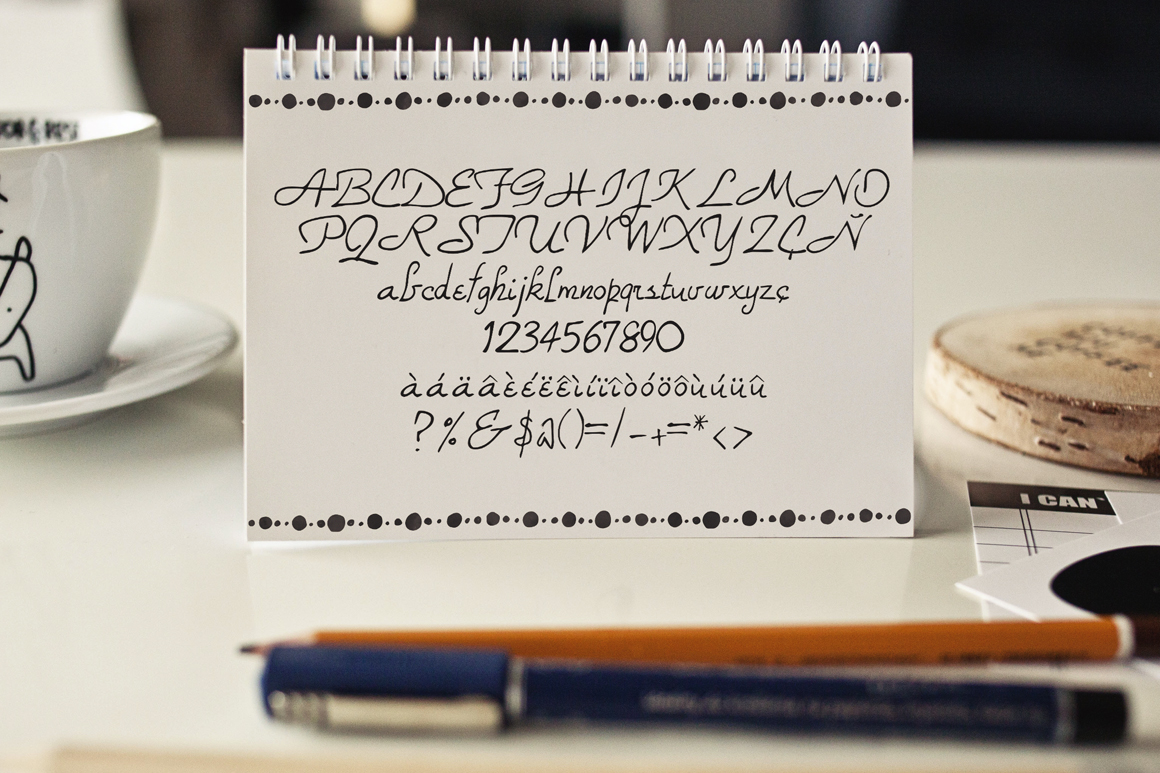 ABCDEFGHIJKLMNO
PQRSTUVWXYZÇÑ
abcdefghijklmnopqrstuvwxyzç
1234567890
àáäâèéëêìíïîòóöôùúüû
?%&$@()=/-+=*<>
I CAN